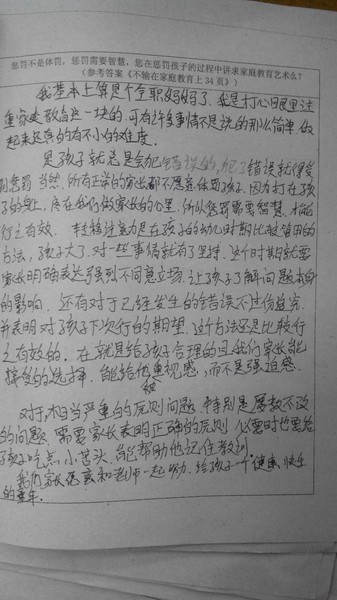 惩罚不是体罚，惩罚需要智慧，您在惩罚孩子的过程中讲求家庭教育艺术么？
（参考答案《不输在家庭教育上34页》）
我基本上算是个全职妈妈了，我是打心眼里注
重家庭教育这一块的，可有许多事情不是说的那么简单，做
起来还真的有不小的难度。
是孩子就总是会犯错误的，犯了错误就得受
到惩罚，当然，所有正常的家长都不愿意体罚孩子，因为打在孩
子的身上，疼在我们做家长的心里，所以惩罚需要智慧，才能
行之有效。转移注意力是在孩子的幼儿时期比较管用的
方法，孩子大了，对一些事情就有了坚持，这个时期就要
家长明确表达强烈不同意立场，让孩子了解问题本身
的影响，还有对于已经发生的错误不过份追究，
并表明对孩子下次行的期望，这个方法还是比较行
之有效的。在就是给孩子合理的且我们家长能
接受的选择，能给他重视感，而不是强迫感。
对于相当严重的原则问题，特别是屡教不改
的问题，需要家长表明正确的原则，必要时也要给
孩子吃点小苦头，能帮助他记住教训。
我们家长愿意和老师一起努力，给孩子一个健康、快乐
的童年。